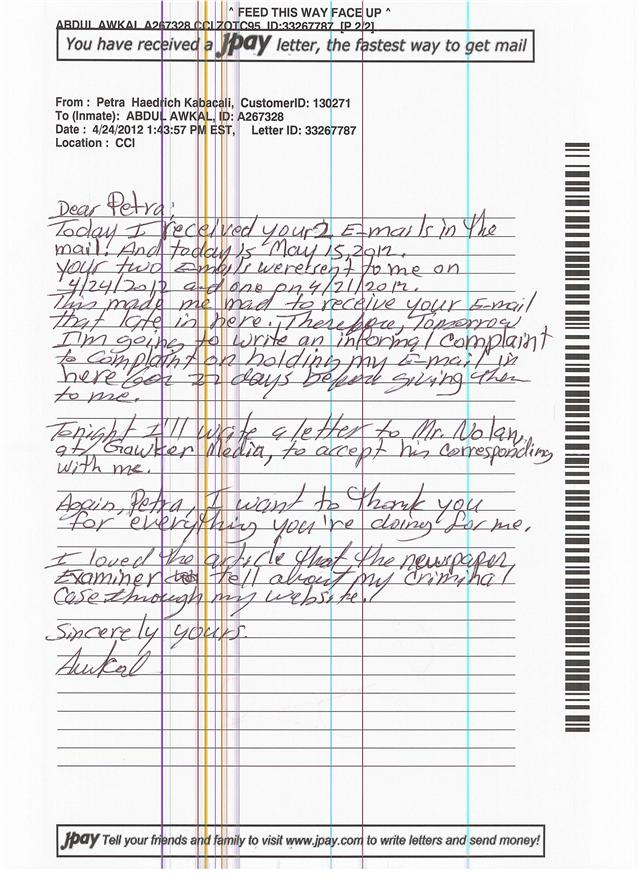 ^ FEED THIS WAY FACE UP ^
ABDUL AWKAL A267328 CCI ZOTC95 ID:33267787 [P 2/2]
You have received a jpay letter, the fastest way to get mail
From : Petra Haedrich Kabacali, CustomerID: 130271
To (Inmate): ABDUL AWKAL, ID: A267328
Date : 4/24/2012 1:43:57 PM EST, Letter ID: 33267787
Location : CCI
Dear Petra;
Today I received your 2 E-mails in the
mail. And today is May 15, 2012.
Your two E-mails were sent to me on
4/24/2012 and one on 4/21/2012.
This made me mad to receive your E-mail
that late in here. Therefore, Tomorrow
I'm going to write an informal complaint
to complaint on holding my E-mail in
here for 22 days before giving them
to me.
Tonight I'll write a letter to Mr. Nolan,
at Gawker Media, to accept his corresponding
with me.
Again, Petra, I want to thank you
for everything you're doing for me.
I loved the article that the newspaper,
Examiner tell about my criminal
case through my website.
Sincerely yours.
Awkal
jpay Tell your friends and family to visit www.jpay.com to write letters and send money!